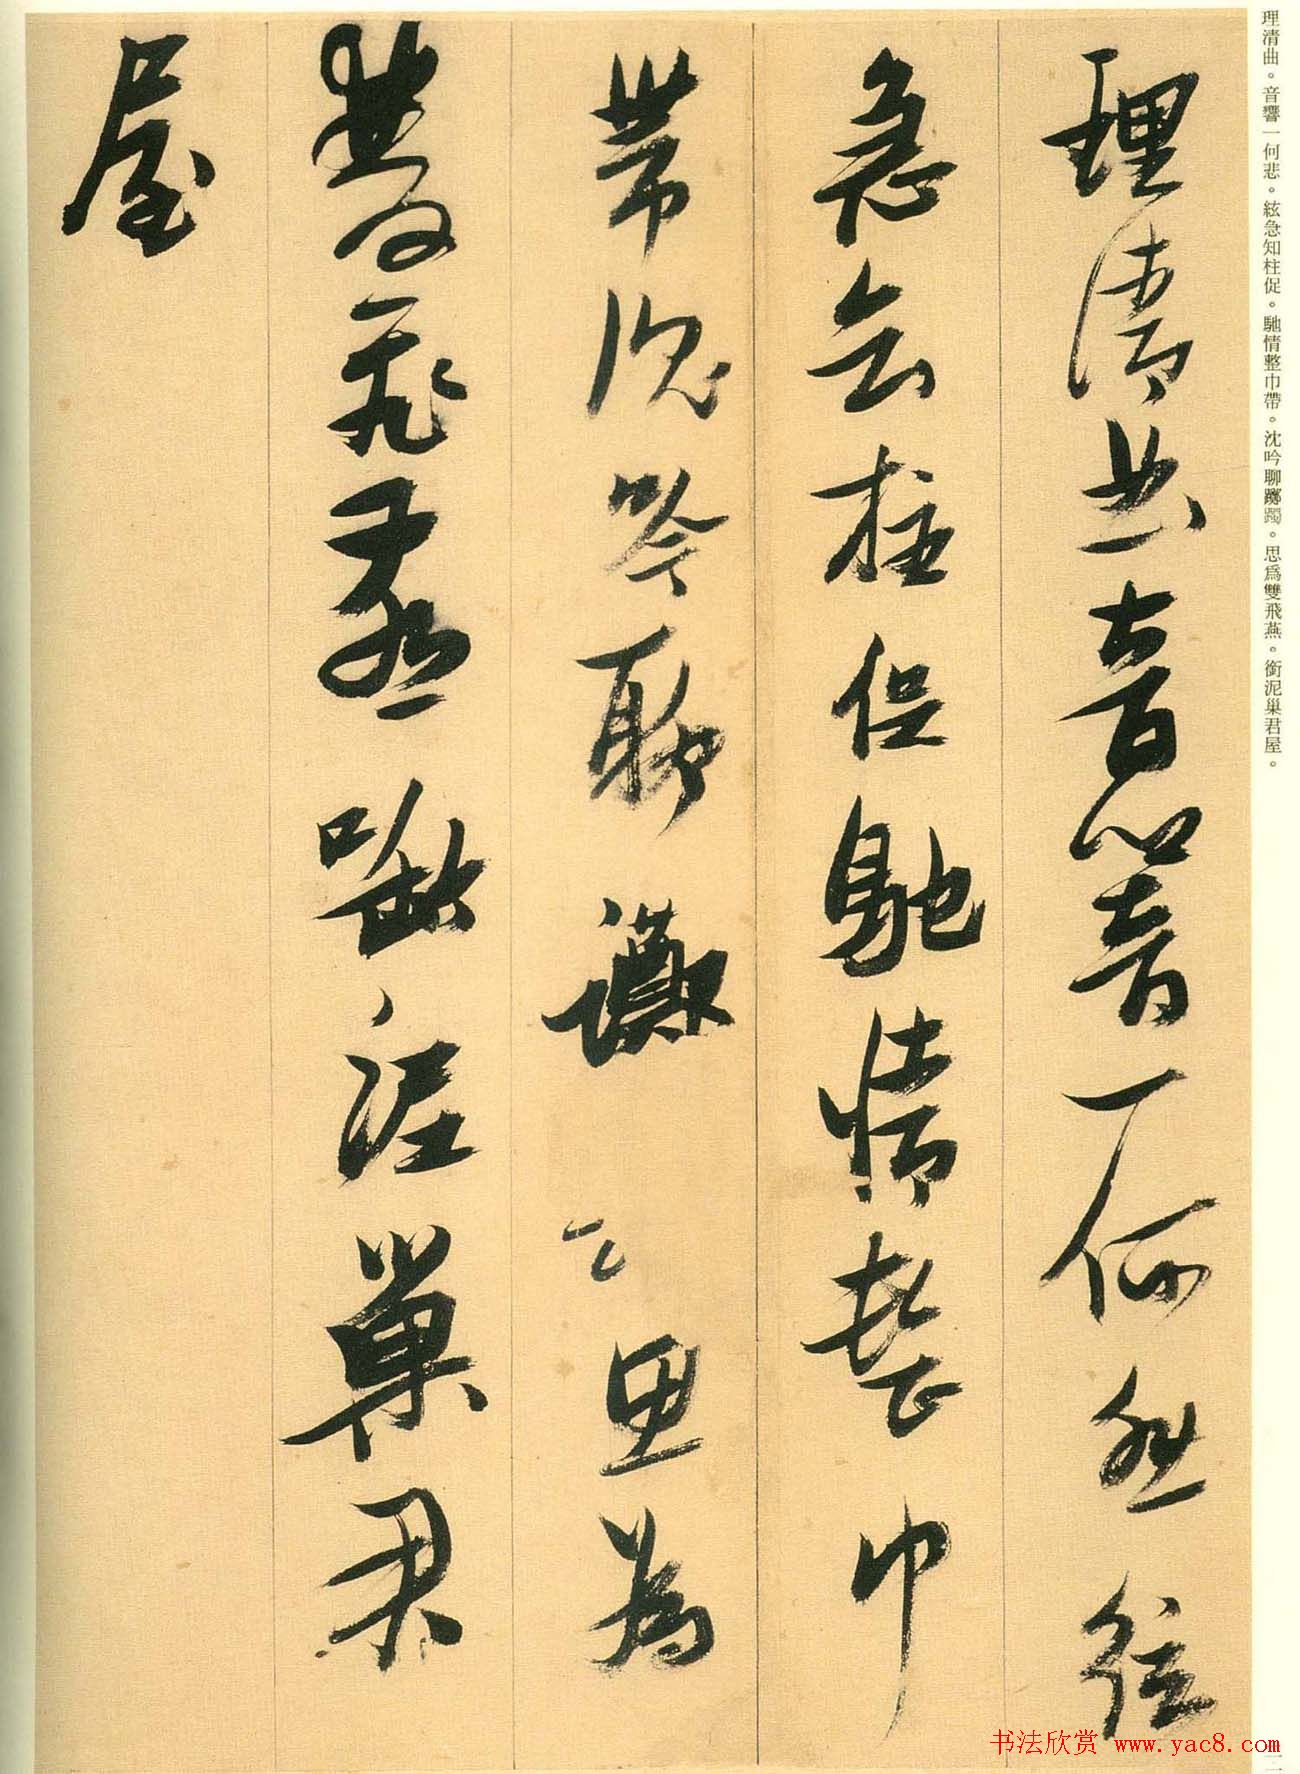 理清曲。音響一何悲。絃急知柱促。馳情整巾帶。沈吟聊躑躅。思爲雙飛燕。銜泥巢君屋。
理清曲音響一何悲絃
急知柱促馳情整巾
帶沈吟聊躑〻思爲
雙飛燕銜泥巢君
屋
书法欣赏 www.yac8.com